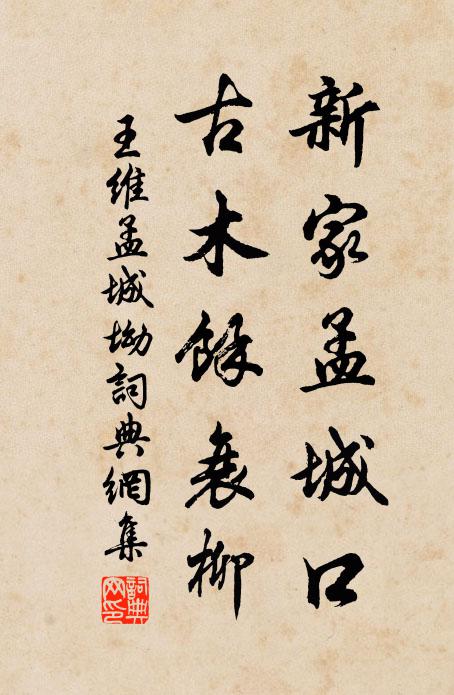 新家孟城口
古木餘衰柳
王維孟城坳詞典網集
詞典網印